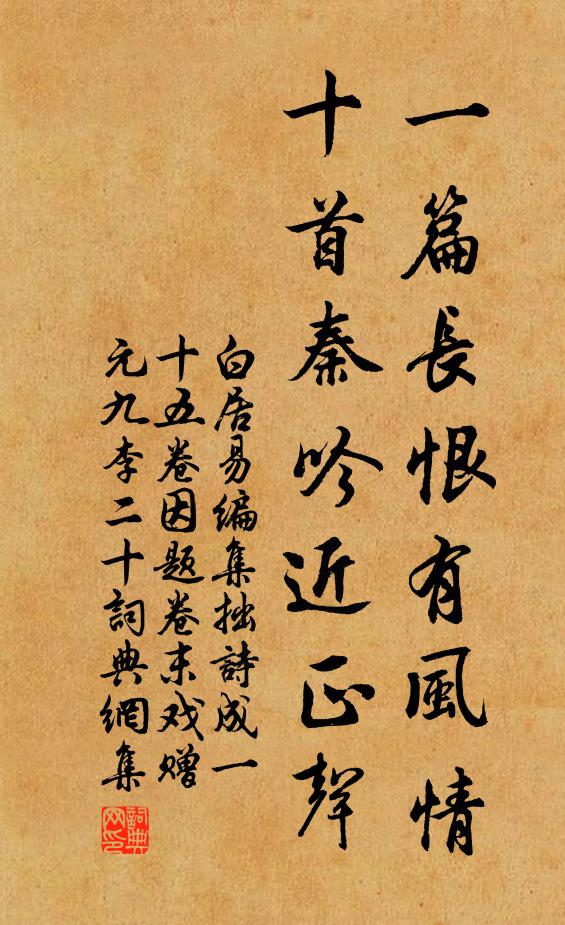 一篇長恨有風情
十首秦吟近正聲
白居易编集拙詩成一
十五卷因題卷末戏赠
元九李二十詞典網集
詞典
网印